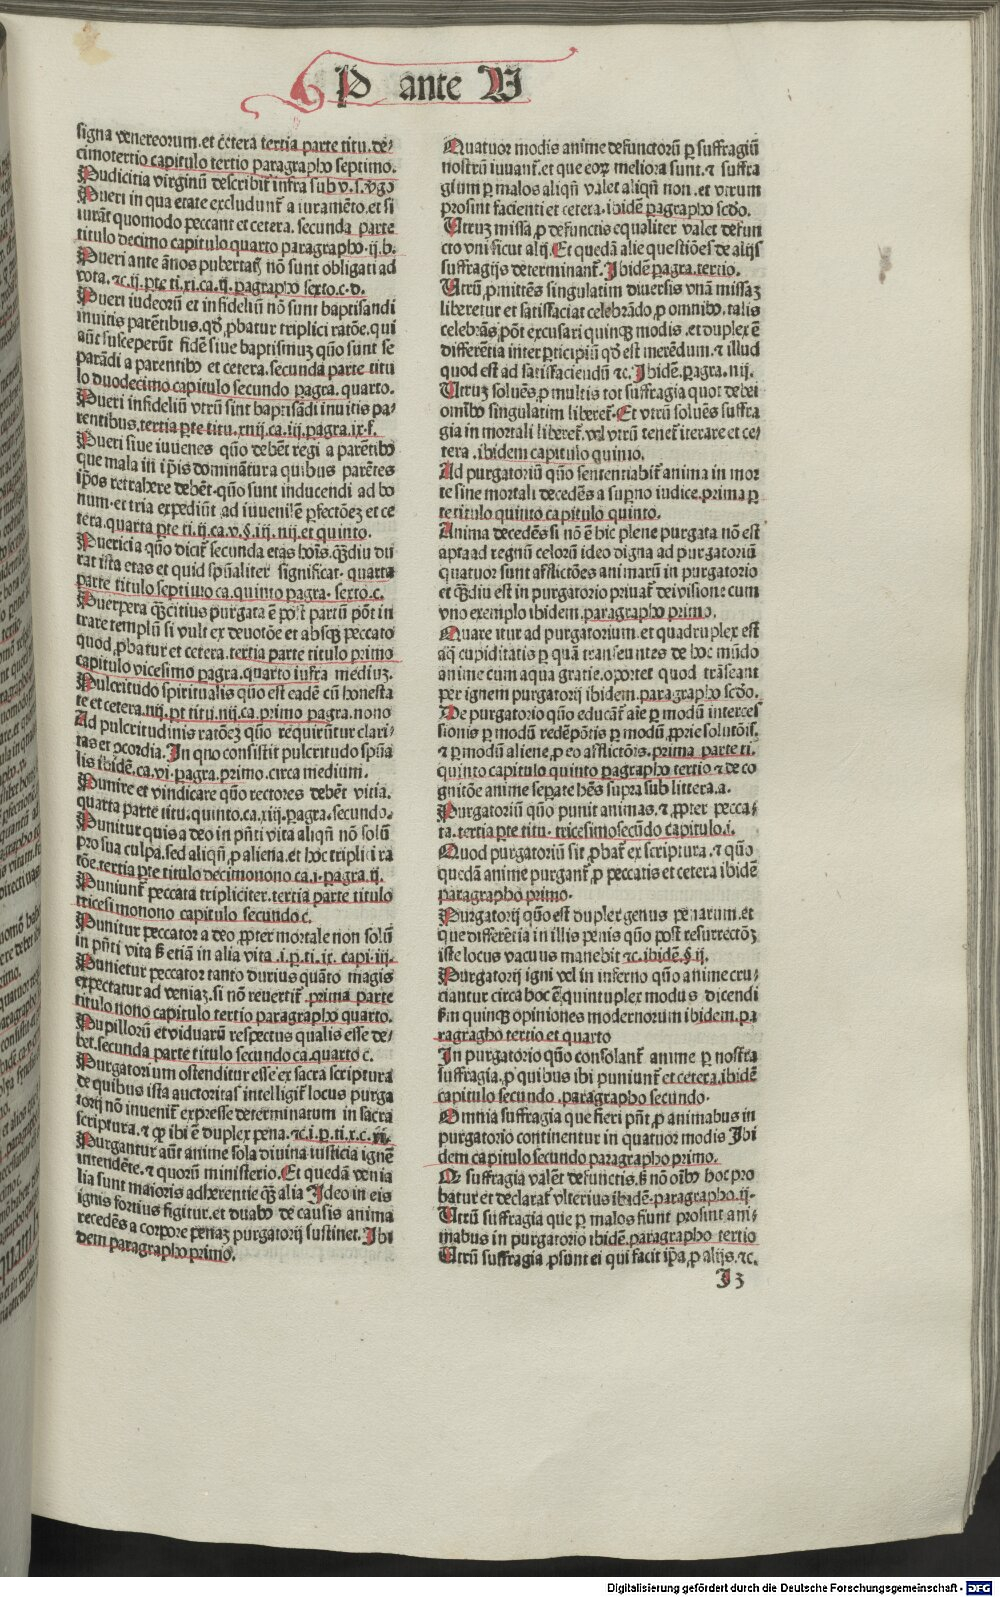 P ante V
signa venereorum.et cetera tertia parte titu.de/
cimotertio capitulo tertio paragrapho septimo.
Pudicitia virginū describit᷑ infra sub v.s.v̄go
Pueri in qua etate excludunt᷑ a iuramēto.et si
iurāt quomodo peccant et cetera.secunda parte
titulo decimo capitulo quarto paragrapho.ij.b.
Pueri ante ānos pubertatꝭ nō sunt obligati ad
vota.⁊c.ij.ꝑte ti.xi.ca.ij.pagrapho sexto.c.d.
Pueri iudeorū et infideliū nō sunt baptisandi
inuitis parētibus.qd̓ ꝓbatur triplici ratōe.qui
aūt susceperūt fidē siue baptismuꝫ quo sunt se
parādi a parentibꝰ et cetera.secunda parte titu
lo duodecimo capitulo secundo pagra.quarto.
Pueri infideliū vtrū sint baptisādi inuitis pa/
rentibus.tertia ꝑte titu.xiij.ca.iij.pagra.ix.f.
Pueri siue iuuenes quō debēt regi a parētibꝰ
que mala in ip̄is dominātura quibus parētes
ip̄os retrahere debēt.quo sunt inducendi ad bo
num.et tria expediūt ad iuuenilē ꝑfectōeꝫ et ce
tera.quarta ꝑte ti.ij.ca.v.§.iij.iiij.et quinto.
Puericia quo dicit᷑ secunda etas hoīs.qꝫdiu du
rat ista etas et quid spūaliter significat.quarta
parte titulo septimo ca.quinto pagra.sexto.c.
Puerpera qꝫcitius purgata ē post partū pōt in
trare templū si vult ex deuotōe et absqꝫ peccato
quod ꝓbatur et cetera.tertia parte titulo primo
capitulo vicesimo pagra.quarto infra mediuꝫ.
Pulcritudo spiritualis quo est eadē cū honesta
te et cetera.iiij.pt titu.iiij.ca.primo pagra.nono
Ad pulcritudinis ratōeꝫ quo requirūtur clari/
tas et ꝓcordia.In quo consistit pulcritudo spūa
lis ibidē.ca.vi.pagra.primo.circa medium.
Punire et vindicare quo rectores debēt vitia.
quarta parte titu.quinto.ca.xiij.pagra.secundo.
Punitur quis a deo in pn̄ti vita aliqn̄ nō solū
pro sua culpa.sed aliqn̄ ꝓ aliena.et hoc triplici ra
tōe.tertia ꝑte titulo decimonono ca.i.pagra.ij.
Puniunt᷑ peccata tripliciter.tertia parte titulo
tricesimonono capitulo secundo c.
Punitur peccator a deo ꝓpter mortale non solū
in pn̄ti vita sꝫ etiā in alia vita.i.p.ti.ix.capi.iij.
Punietur peccator tanto durius quāto magis
expectatur ad veniaꝫ.si nō reuertit᷑.prima parte
titulo nono capitulo tertio paragrapho quarto.
Pupillorū et viduarū respectus qualis esse de/
bet.secunda parte titulo secundo ca.quarto c.
Purgatorium ostenditur esse ex sacra scriptura
de quibus ista auctoritas intelligit᷑ locus purga
torij nō inuenit᷑ expresse determinatum in sacra
scriptura.et qꝫ ibi ē duplex pena.⁊c.i.p.ti.x.c.vi.
Purgantur aūt anime sola diuina iusticia ignē
intendēte.⁊ quorū ministerio.Et quedā venia
lia sunt maioris adherentie qꝫ alia Ideo in eis
ignis fortius figitur.et duabꝰ de causis anima
recedēs a corpore penaꝫ purgatorij sustinet.Ibi
dem paragrapho primo.
Quatuor modis anime defunctorū ꝑ suffragiū
nostrū iuuant᷑.et que eoꝝ meliora sunt.⁊ suffra
gium ꝑ malos aliqn̄ valet aliqn̄ non.et vtrum
prosint facienti et cetera.ibidē pagrapho scd̓o.
Vtruꝫ missa ꝓ defunctis equaliter valet defun
cto vni sicut alij.Et quedā alie questiōes de alijs
suffragijs determinant᷑.Ibidē pagra.tertio.
Vtrū ꝓmittēs singulatim diuersis vnā missaꝫ
liberetur et satisfaciat celebrādo ꝓ omnibꝰ.talis
celebrās pōt excusari quinqꝫ modis.et duplex ē
differētia inter ꝑticipiū qd̓ est merēdum.⁊ illud
quod est ad satisfaciendū ⁊c.Ibidē pagra.iiij.
Vtruꝫ soluēs ꝓ multis tot suffragia quot debet
omībꝰ singulatim liberet᷑.Et vtrū soluēs suffra
gia in mortali liberet᷑.vel vtrū tenet᷑ iterare et ce/
tera.ibidem capitulo quinto.
Ad purgatoriū quo sententiabit᷑ anima in mor
te sine mortali decedēs a sup̄no iudice.prima ꝑ
te titulo quinto capitulo quinto.
Anima decedēs si nō ē hic plene purgata nō est
apta ad regnū celorū ideo digna ad purgatoriū
quatuor sunt afflictōes animarū in purgatorio
et qꝫdiu est in purgatorio priuat᷑ dei visione cum
vno exemplo ibidem.paragrapho primo.
Quare itur ad purgatorium.et quadruplex est
aq̄ cupiditatis ꝑ quā transeuntes de hoc mūdo
anime cum aqua gratie.oportet quod trāseant
per ignem purgatorij ibidem.paragrapho scd̓o.
De purgatorio quo educāt᷑ aīe ꝑ modū interces
sionis ꝑ modū redēpōtis ꝑ modū ꝓprie solutōis.
⁊ ꝑ modū aliene ꝓ eo afflictōis.prima parte ti.
quinto capitulo quinto pagrapho tertio ⁊ de co
gnitōe anime sepate hēs supra sub littera.a.
Purgatoriū quo punit animas.⁊ ꝓpter pecca/
ta.tertia ꝑte titu.tricesimosecūdo capitulo.i.
Quod purgatoriū sit ꝓbat᷑ ex scriptura.⁊ quo
quedā anime purgant᷑ ꝓ peccatis et cetera ibidē
paragrapho primo.
Purgatorij quo est duplex genus penarum.et
que differētia in illis penis quo post resurrectōꝫ
iste locus vacuus manebit ⁊c.ibidē.§.ij.
Purgatorij igni vel in inferno quo anime cru/
ciantur circa hoc ē quintuplex modus dicendi
sꝫm quinqꝫ opiniones modernorum ibidem.pa
ragragho tertio et quarto
In purgatorio quo consolant᷑ anime ꝑ nostra
suffragia.ꝓ quibus ibi puniunt᷑ et cetera.ibidē
capitulo secundo.paragrapho secundo.
Omnia suffragia que fieri pn̄t ꝓ animabus in
purgatorio continentur in quatuor modis Ibi
dem capitulo secundo paragrapho primo.
Qꝫ suffragia valēt defunctis.sꝫ nō oībꝰ hoc pro
batur et declarat᷑ vlterius ibidē.paragrapho.ij.
Vtrū suffragia que ꝑ malos fiunt prosint ani/
mabus in purgatorio ibidē.paragrapho tertio
Vtrū suffragia ꝓsunt ei qui facit ip̄a ꝓ alijs.⁊c.
I 3
Digitalisierung gefördert durch die Deutsche Forschungsgemeinschaft - DFG